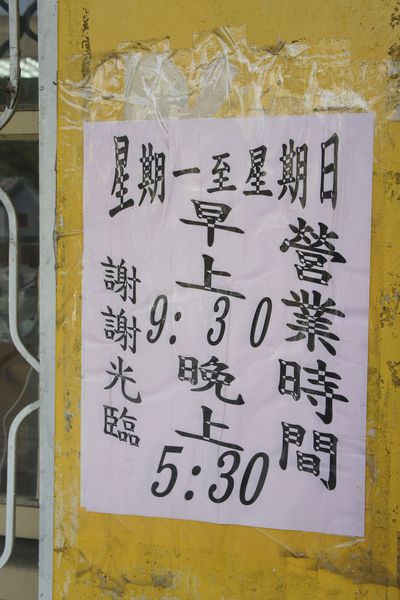 星期一至星期日
營業時間
早上
9:30
晚上
5:30
謝謝光臨